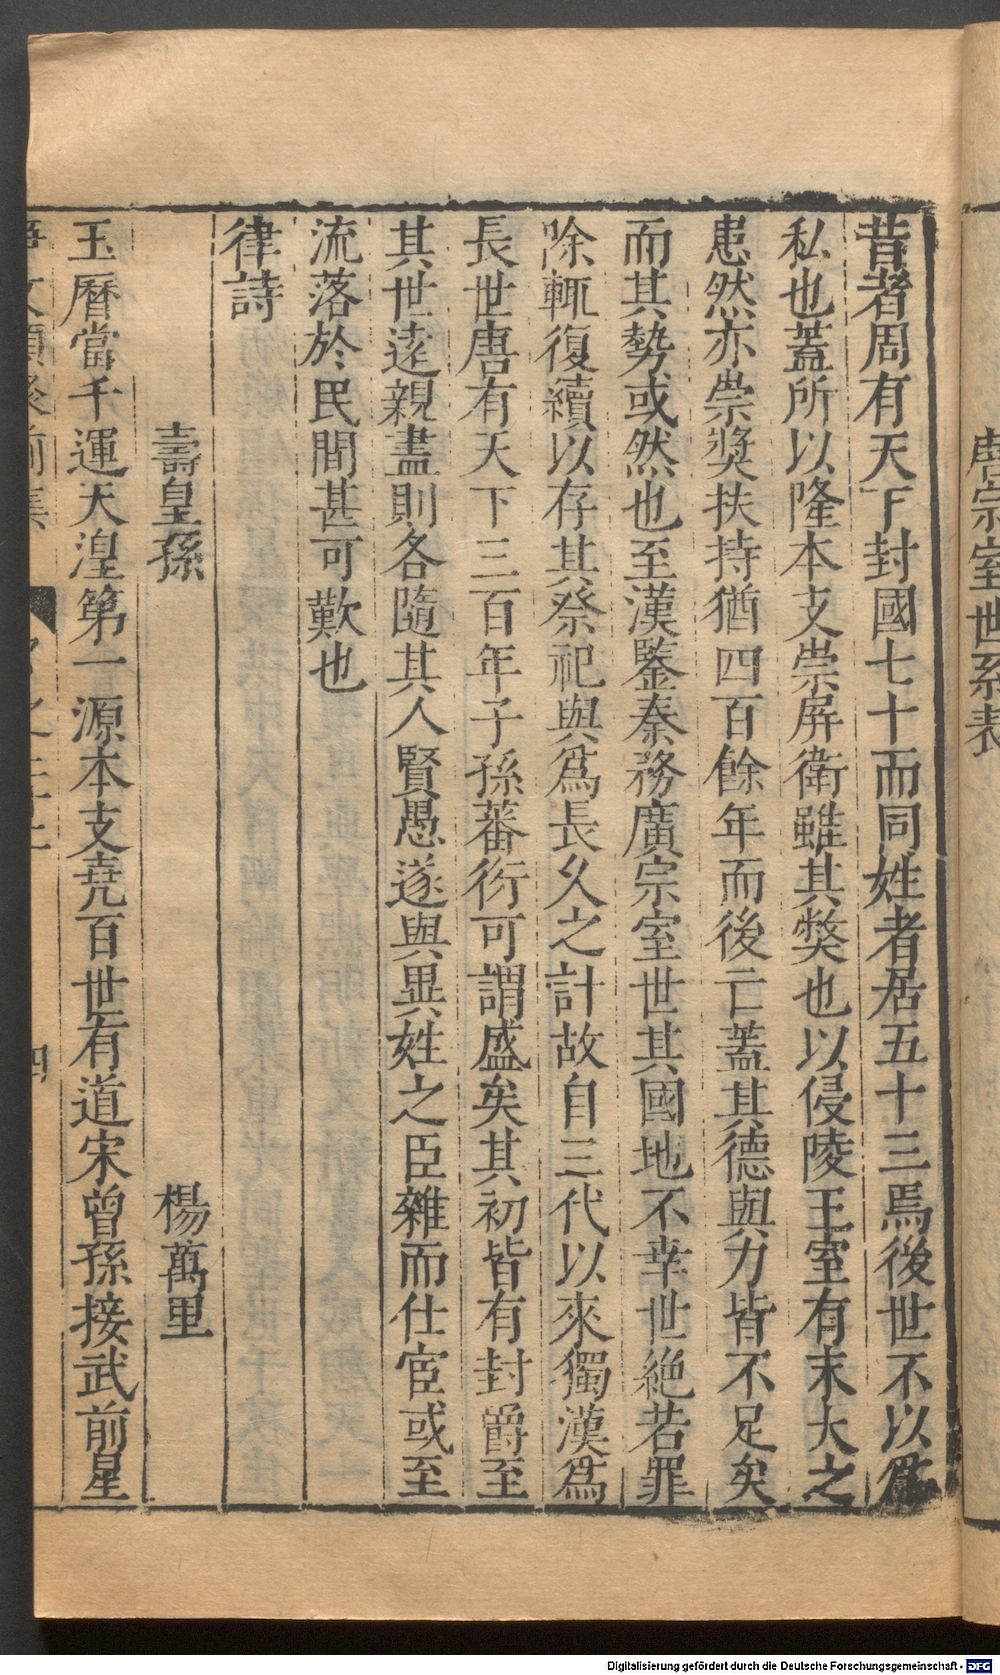 唐宗室世系表
昔者周有天下封國七十而同姓者居五十三焉後世不以爲
私也蓋所以隆本支崇屏衛雖其獘也以侵陵王室有末大之
患然亦崇奬扶持猶四百餘年而後亡蓋其德與力皆不足矣
而其勢或然也至漢鑒秦務廣宗室世其國地不幸世絶若罪
除輒復續以存其祭祀與爲長久之計故自三代以來獨漢爲
長世唐有天下三百年子孫蕃衍可謂盛矣其初皆有封爵至
其世逺親盡則各隨其人賢愚遂與異姓之臣雜而仕宦或至
流落於民間甚可歎也
律詩
壽皇孫 楊萬里
玉曆當千運天潢第一源本支堯百世有道宋曾孫接武前星
Digitalisierung gefördert durch die Deutsche Forschungsgemeinschaft - DFG